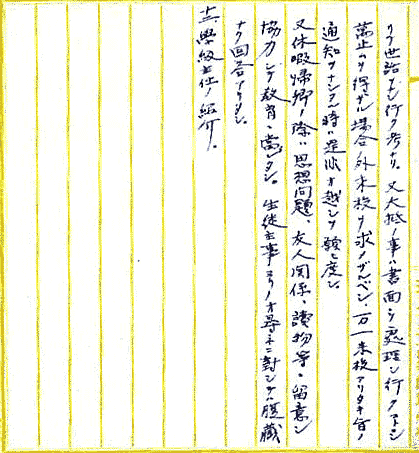 リテ世話シテ行ク考ナリ。又大抵ノ事ハ書面ニテ処理シ行クトシ
萬止ムヲ得ザル場合ノ外来校ヲ求メザルベシ、万一来校アリタキ旨ノ
通知ヲナシタル時ハ是非オ越シヲ願ヒ度シ。
又休暇帰郷ノ際ハ思想問題、友人関係、讀物等ニ留意シ
協力シテ教育ニ當リタシ。生徒主事ヨリノオ尋ネニ対シテハ腹蔵
ナク回答アリタシ。
十二、學級主任ノ紹介。